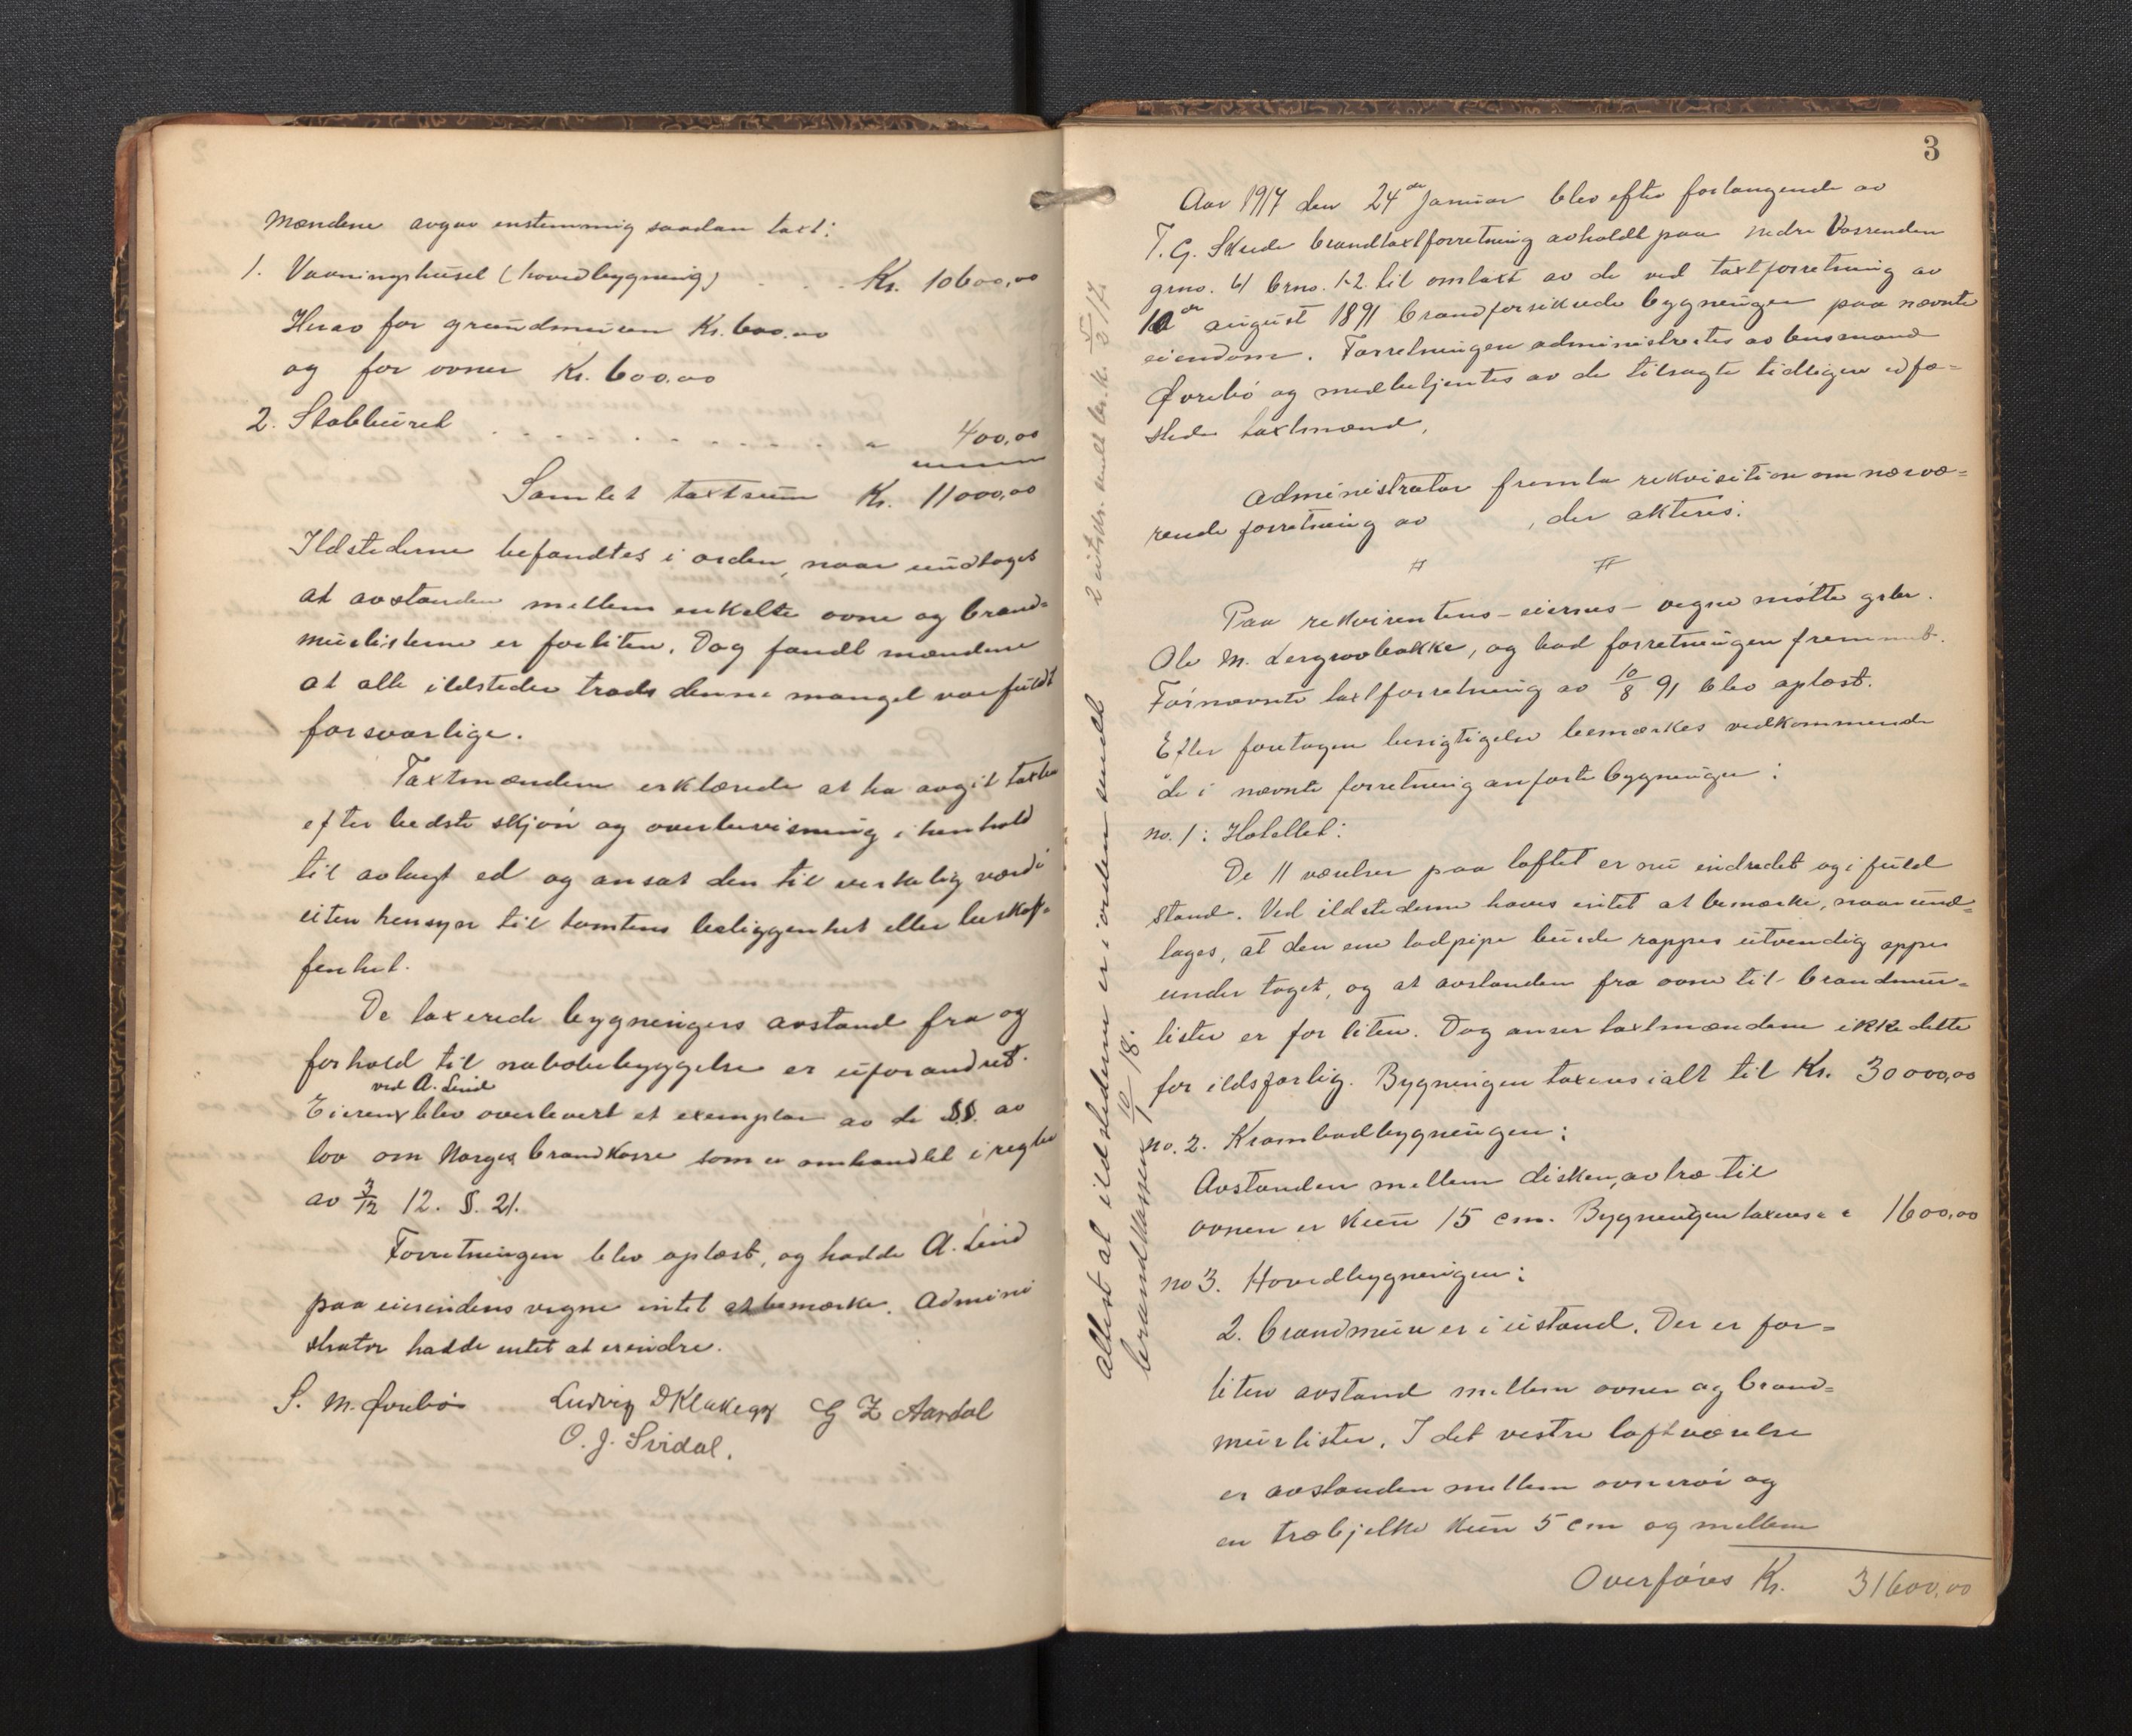 Mændene avgav enstemmig saadan taxt:
1. Vaaningshuset (hovedbygning) . . . Kr. 10600,00
Herav for grundmuren Kr. 600,00
og for ovner Kr. 600,00
2. Stabburet . . . . . . . . . . " 400,00
Samlet taxtsum Kr. 11000,00
Ildstederne befandtes i orden, naar undtages
at avstanden mellem enkelte ovne og brand=
murlisterne er forliten. Dog fandt mændene
at alle ildsteder trods denne mangel var fuldt
forsvarlige.
Taxtmændene erklærede at ha avgit taxten
efter bedste skjøn og overbevisning i henhold
til avlagt ed og ansat den til virkelig værdi
uten hensyn til tomtens beliggenhet eller beskaf-
fenhet.
De taxerede bygningers avstand fra og
forhold til nabobebyggelse er uforandret.
ved A. Lund
Eieren blev overlevert et exemplar av de §§. av
lov om Norges brandkasse som er omhandlet i regler
av 3/12 12. §. 21.
Forretningen blev oplæst, og hadde A. Lund
paa eierindens vegne intet at bemærke. Admini
strator hadde intet at erindre.
S. M. Ørebø Ludvig D Klakegg G Z Aardal
O. J. Svidal.
3
Aar 1917 den 24de januar blev efter forlangende av
T. G. Skeide brandtaxtforretning avholdt paa nedre Vassenden
grno. 41 brno. 1-2 til omtaxt av de ved taxtforretning av
10de august 1891 brandforsikrede bygninger paa nævnte
eiendom. Forretningen administrertes av lensmand
Ørebø og medbetjentes av de tilsagte tidligere edfæ=
stede taxtmænd.
Administrator fremla rekvisition om nærvæ=
rende forretning av , der akteres:
# #
Paa rekvirentens - eierens - vegne møtte grbr.
Ole M. Lergrovbakke, og bad forretningen fremmet.
Førnævnte taxtforretning av 10/8 91 blev oplæst.
Efter foretagen besigtigelse bemærkes vedkommende
de i nævnte forretning anførte bygninger:
no. 1: Hotellet:
De 11 værelser paa loftet er nu indredet og i fuld
stand. Ved ildstederne haves intet at bemærke, naar und=
tages, at den ene lodpipe burde rappes utvendig oppe
under taget, og at avstanden fra ovne til brandmur=
lister er for liten. Dog anser taxtmændene ikke dette
for ildsfarlig. Bygningen taxeres ialt til Kr. 30000,00
no. 2. Krambodbygningen:
Avstanden mellem disken, av træ til
ovnen er kun 15 cm. Bygningen taxeres " " 1600,00
no 3. Hovedbygningen:
2. brandmure er i ustand. Der er for=
liten avstand mellem ovner og brand=
murlister. I det vestre loftværelse
er avstanden mellem ovnsrør og
en træbjelke kun 5 cm og mellem
Overføres Kr. 31600,00
2 utskr. sendt br.k. 5/2 17.
Attest at ildstederne er i orden sendt
brandkassen 10/1 18.